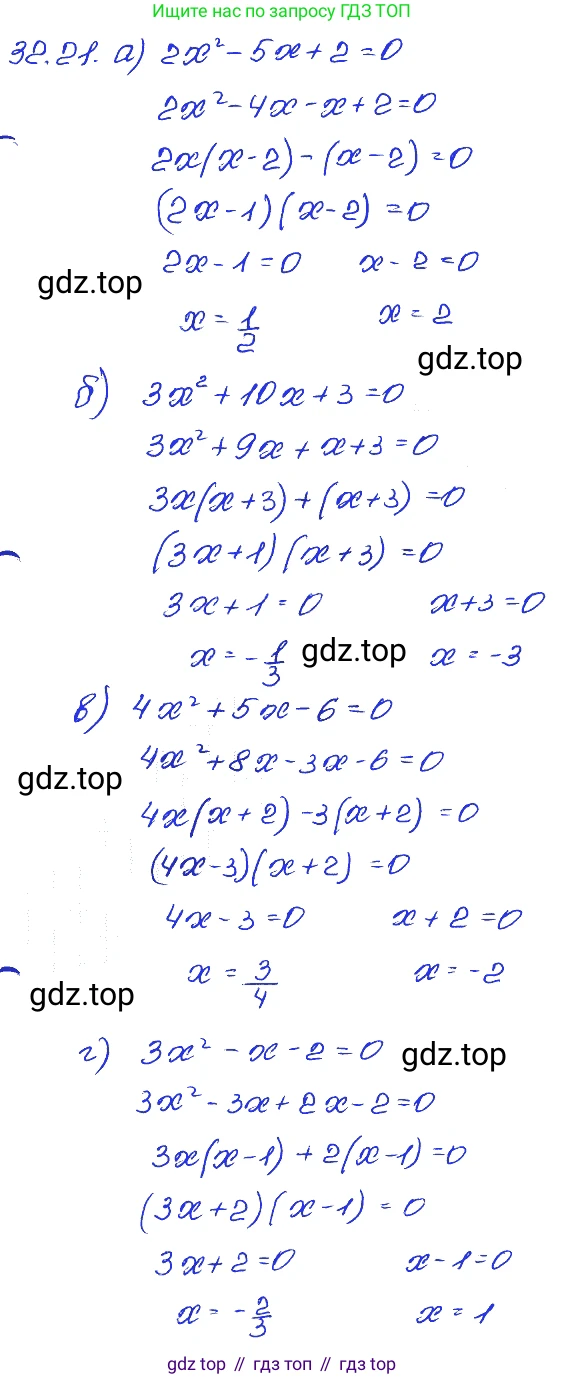 Ищите нас по запросу ГДЗ ТОП
32.21. а) 2x² - 5x + 2 = 0
2x² - 4x - x + 2 = 0
2x(x - 2) - (x - 2) = 0
(2x - 1)(x - 2) = 0
2x - 1 = 0 x - 2 = 0
gdz.top
x = 1/2 x = 2
gdz.top
б) 3x² + 10x + 3 = 0
3x² + 9x + x + 3 = 0
3x(x + 3) + (x + 3) = 0
(3x + 1)(x + 3) = 0
3x + 1 = 0 x + 3 = 0
x = - 1/3 gdz.top x = -3
в) 4x² + 5x - 6 = 0
4x² + 8x - 3x - 6 = 0
gdz.top
4x(x + 2) - 3(x + 2) = 0
(4x - 3)(x + 2) = 0
4x - 3 = 0 x + 2 = 0
x = 3/4 x = -2
gdz.top
г) 3x² - x - 2 = 0 gdz.top
3x² - 3x + 2x - 2 = 0
3x(x - 1) + 2(x - 1) = 0
(3x + 2)(x - 1) = 0
3x + 2 = 0 x - 1 = 0
x = - 2/3 x = 1
gdz top // гдз топ // gdz.top